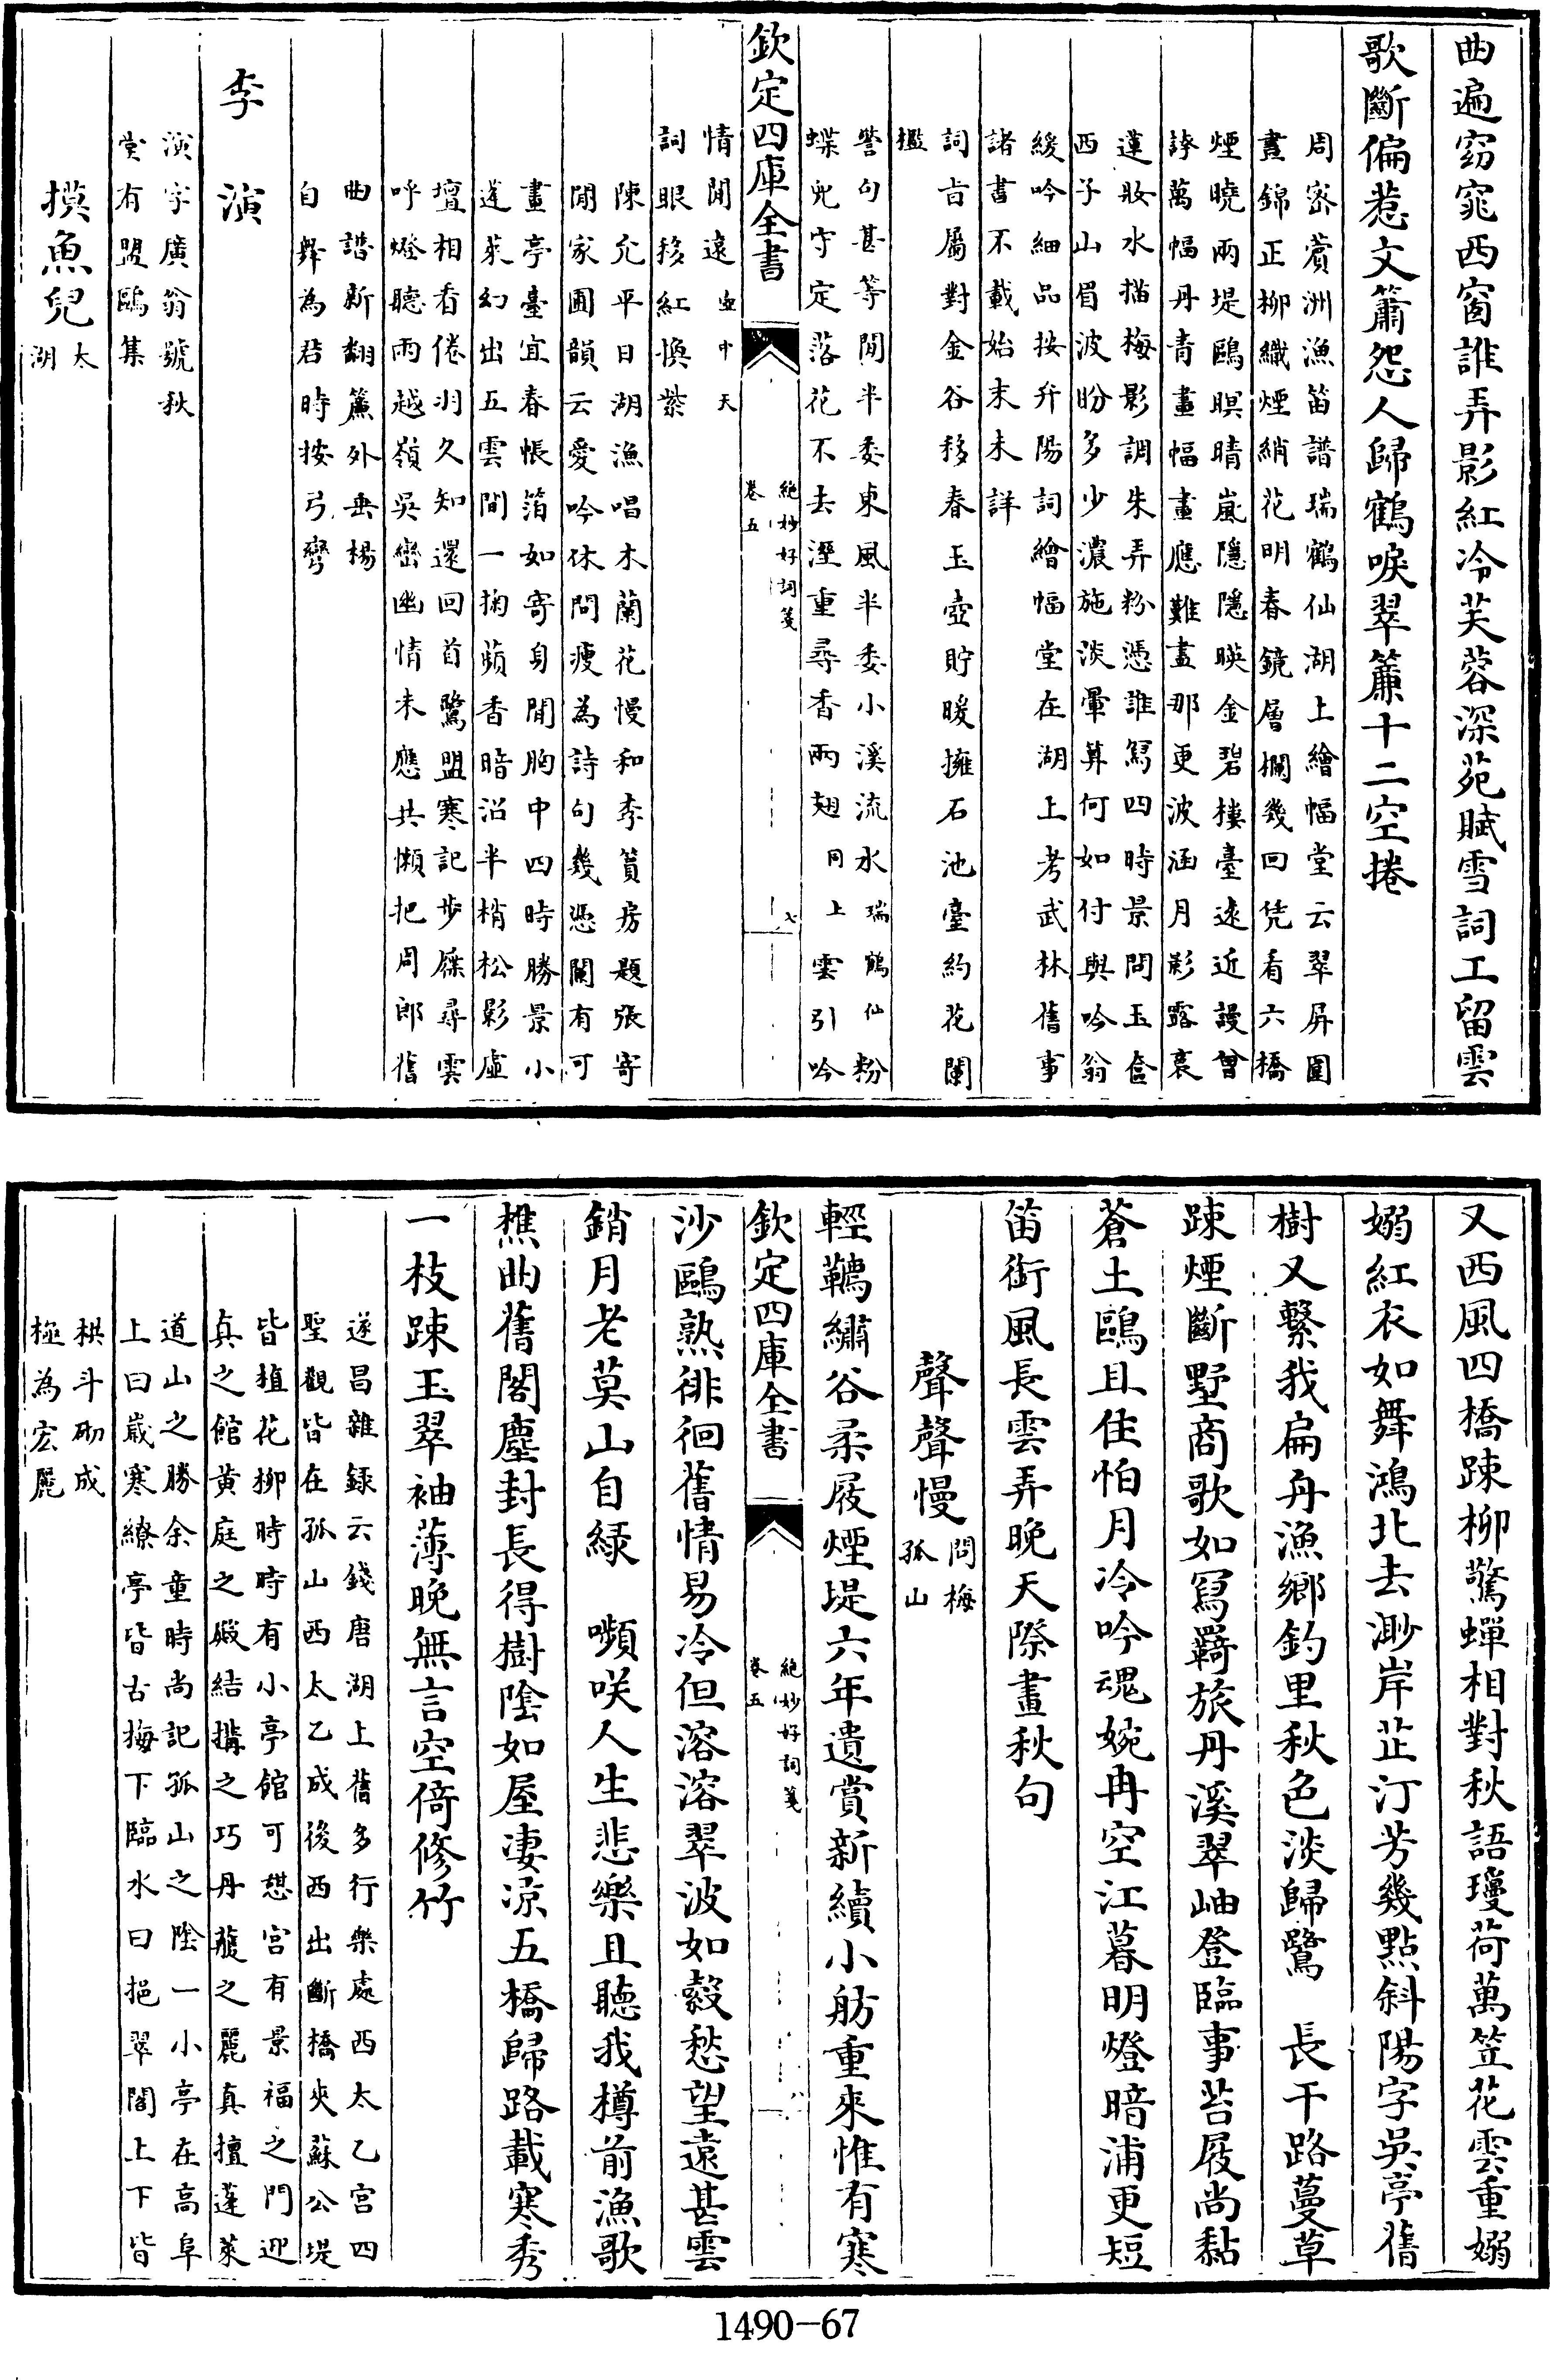 曲遍窈窕西窗誰弄影紅冷芙蓉深苑賦雪詞工留雲
歌斷偏惹文簫怨人歸鶴唳翠簾十二空捲
周密薲洲漁笛譜瑞鶴仙湖上繪幅堂云翠屏圍
晝錦正柳纖煙綃花明春鏡層欄幾回凭看六橋
煙曉兩堤鷗暝晴嵐隱隱暎金碧樓臺遠近謾曾
誇萬幅丹青畫幅畫應難盡那更波涵月影露裛
蓮妝水描梅影調朱弄粉憑誰寫四時景問玉奩
西子山眉波盼多少濃施淡暈算何如付與吟翁
緩吟細品按弁陽詞繪幅堂在湖上考武林舊事
諸書不載始末未詳
詞旨屬對金谷移春玉壺貯暖擁石池臺約花闌
檻
警句甚等閒半委東風半委小溪流水瑞鶴仙粉
蝶兒守定落花不去溼重尋香兩翅同上雲引吟
欽定四庫全書
絶妙好詞箋
卷五
七
情閒遠壺中天
詞眼移紅換紫
陳允平日湖漁唱木蘭花慢和李篔房題張寄
閒家圃韻云愛吟休問瘦為詩句幾憑闌有可
畫亭臺宜春帳箔如寄身閒胸中四時勝景小
蓬萊幻出五雲間一掬蘋香暗沼半梢松影虛
壇相看倦羽久知還回首鷺盟寒記步屧尋雲
呼燈聽雨越嶺吳巒幽情未應共懶把周郎舊
曲譜新翻簾外垂楊
自舞為君時按弓彎
李演
演字廣翁號秋
堂有盟鷗集
摸魚兒太
湖
又西風四橋疎柳驚蟬相對秋語瓊荷萬笠花雲重嫋
嫋紅衣如舞鴻北去渺岸芷汀芳幾點斜陽字吳亭舊
樹又繫我扁舟漁鄉釣里秋色淡歸鷺　長干路蔓草
踈煙斷墅商歌如寫羇旅丹溪翠岫登臨事苔屐尚黏
蒼土鷗且住怕月冷吟魂婉冉空江暮明燈暗浦更短
笛銜風長雲弄晚天際畫秋句
聲聲慢問梅
孤山
輕韉繡谷柔屐煙堤六年遺賞新續小舫重來惟有寒
欽定四庫全書
絶妙好詞箋
卷五
八
沙鷗熟徘徊舊情易冷但溶溶翠波如縠愁望遠甚雲
銷月老莫山自緑　嚬咲人生悲樂且聽我樽前漁歌
樵曲舊閣塵封長得樹陰如屋凄凉五橋歸路載寒秀
一枝踈玉翠袖薄晚無言空倚修竹
遂昌雜録云錢唐湖上舊多行樂處西太乙宫四
聖觀皆在孤山西太乙成後西出斷橋夾蘇公堤
皆植花柳時時有小亭館可憇宫有景福之門迎
真之館黄庭之殿結搆之巧丹艧之麗真擅蓬萊
道山之勝余童時尚記孤山之陰一小亭在高阜
上曰歲寒繚亭皆古梅下臨水曰挹翠閣上下皆
栱斗砌成
極為宏麗
1490-67